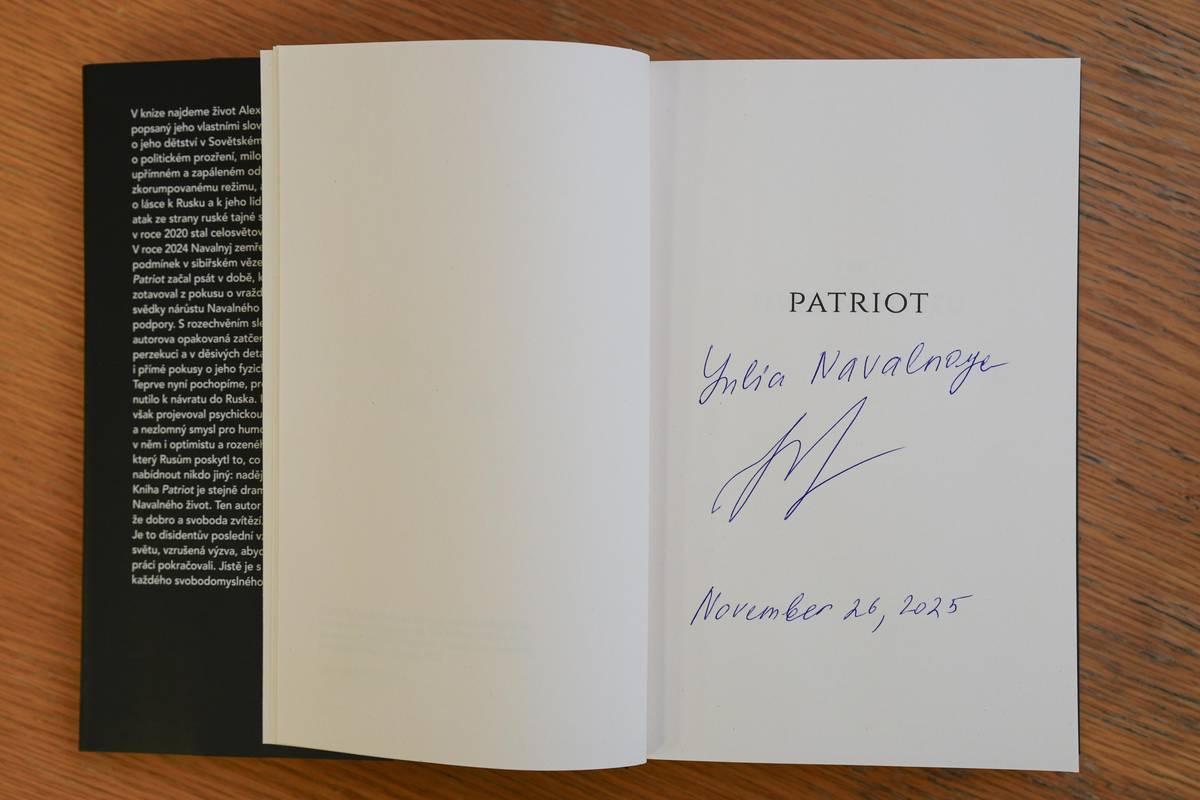 V knize najdeme život Alex
popsaný jeho vlastními slov
o jeho dětství v Sovětském
o politickém prozření, milo
upřímném a zapáleném od
zkorumpovanému režimu, a
o lásce k Rusku a k jeho lid
atak ze strany ruské tajné s
v roce 2020 stal celosvětov
V roce 2024 Navalnyj zemře
podmínek v sibiřském věze
Patriot začal psát v době, k
zotavoval z pokusu o vražd
svědky nárůstu Navalného
podpory. S rozechvěním sle
autorova opakovaná zatčen
perzekuci a v děsivých deta
i přímé pokusy o jeho fyzic
Teprve nyní pochopíme, pr
nutilo k návratu do Ruska.
však projevoval psychickou
a nezlomný smysl pro humo
v něm i optimistu a rozenéh
který Rusům poskytl to, co
nabídnout nikdo jiný: naděj
Kniha Patriot je stejně dram
Navalného život. Ten autor
že dobro a svoboda zvítězí.
Je to disidentův poslední vz
světu, vzrušená výzva, abyc
práci pokračovali. Jistě je s
každého svobodomyslného
PATRIOT
Yulia Navalnaya
November 26, 2025